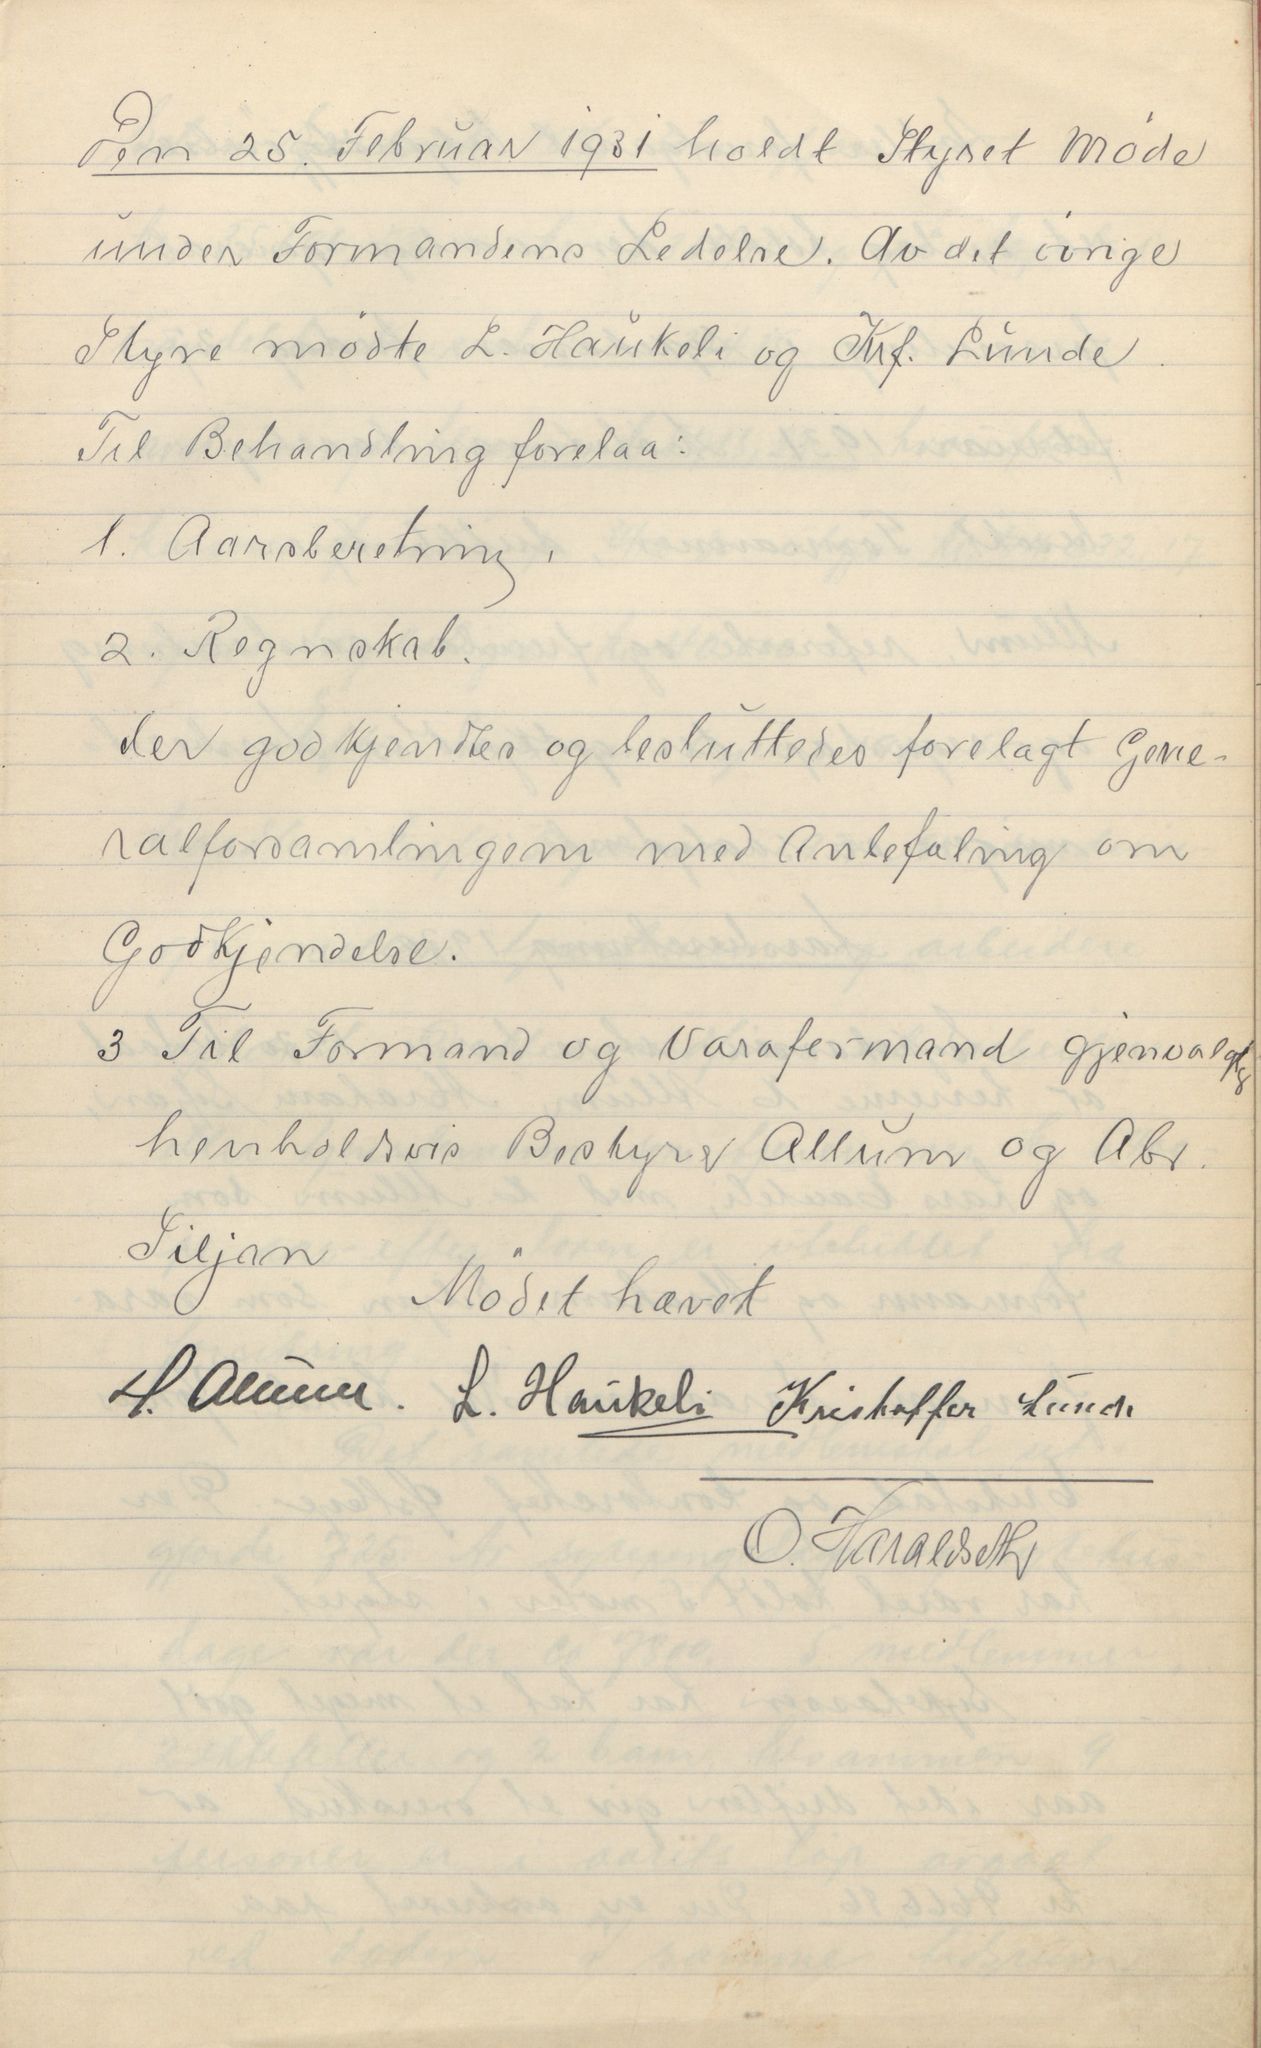 Den 25. Februar 1931 holdt Styret Møde
under Formandens Ledelse. Av det övrige
Styre mödte L. Haukeli og Krf. Lunde.
Til Behandling forelaa:
1. Aarsberetning.
2. Regnskab.
der godkjendtes og besluttedes forelagt Gene-
ralforsamlingen med Anbefaling om
Godkjendelse.
3 Til Formand og Varaformand gjenvalgtes
henholdsvis Bestyrer Allum og Abr.
Siljan
Mödet hævet
H. Allum. L. Haukeli Kristoffer Lunde
O. Haraldseth